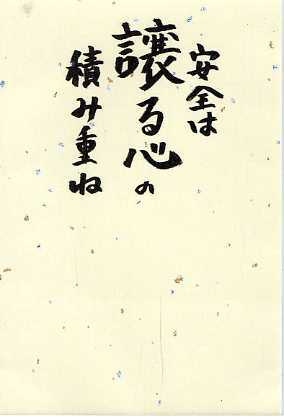 安全は
譲る心の
積み重ね